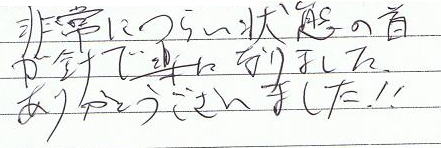 非常につらい状態の首
が針で楽になりました
ありがとうございました!!